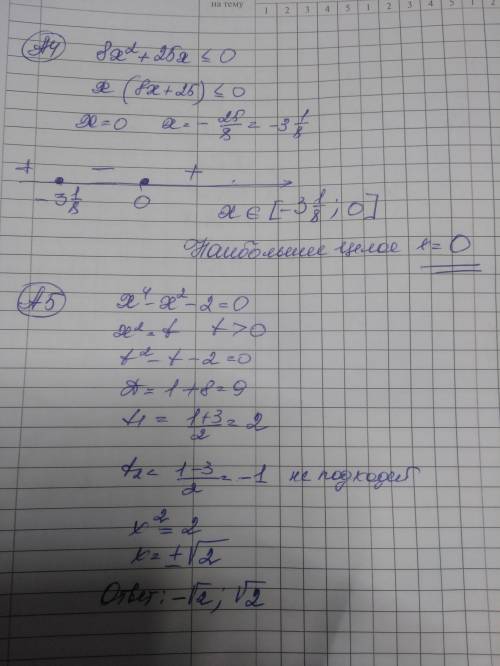 на тему
1 2 3 4 5 1 2 3 4 5 1 2
А4 8x² + 25x ≤ 0
x (8x + 25) ≤ 0
x = 0 x = - 25/8 = -3 1/8
+ − +
-3 1/8 0
x ∈ [-3 1/8 ; 0]
Наибольшее целое x = 0
А5 x⁴ - x² - 2 = 0
x² = t t > 0
t² - t - 2 = 0
D = 1 + 8 = 9
t₁ = (1+3)/2 = 2
t₂ = (1-3)/2 = -1 не подходит
x² = 2
x = ±√2
Ответ: -√2 ; √2